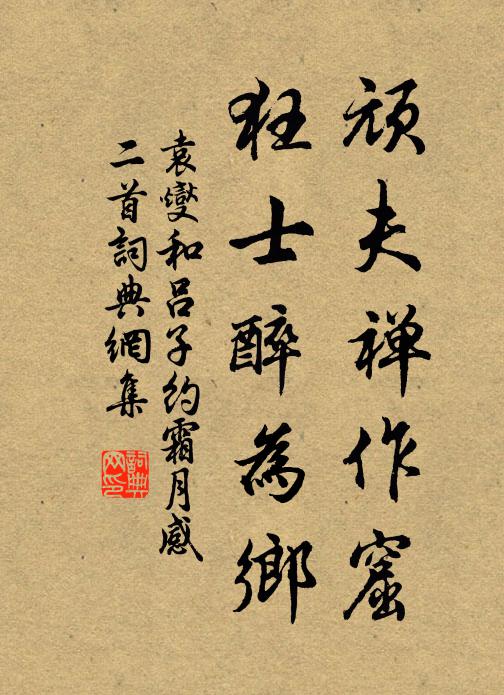 頑夫禅作窟
狂士醉為鄉
袁燮和呂子約霜月感
二首詞典網集
詞典网印